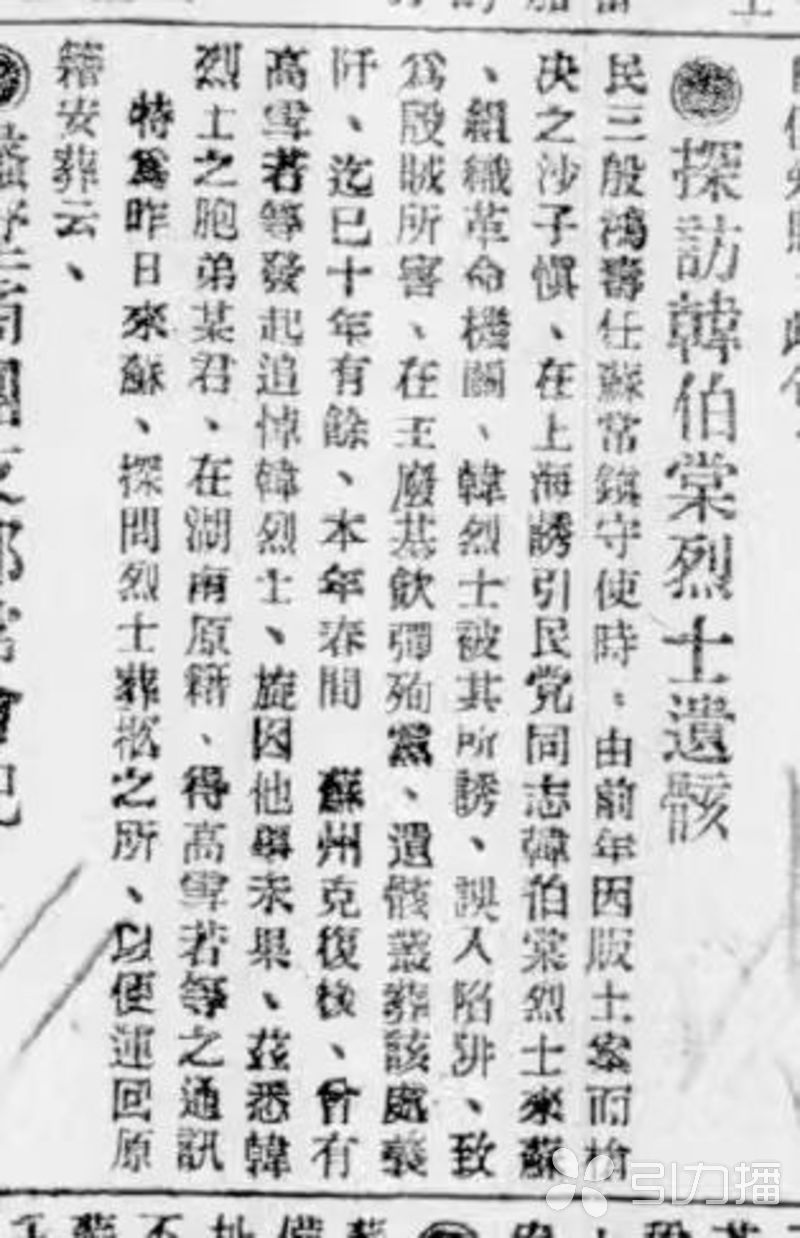 探訪韓伯棠烈士遺骸
民三殷鴻壽任蘇常鎮守使時、由前年因販土案而槍
决之沙子慎、在上海誘引民党同志韓伯棠烈士來蘇
、組織革命機關、韓烈士被其所誘、誤入陷阱、致
爲殷賊所害、在王廢基飲彈殉黨、遺骸叢葬該處義
阡、迄已十年有餘、本年春間 蘇州克復後、會有
高雪若等發起追悼韓烈士、旋因他事未果、茲悉韓
烈士之胞弟某君、在湖南原籍、得高雪若等之通訊
特爲昨日來蘇、探問烈士葬柩之所、以便運回原
籍安葬云、
引力播